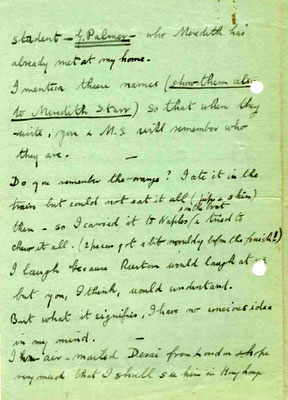 student - G. Palmer - who Meredith has
already met at my home.
I mention these names (show them also
to Meredith Starr) so that when they
write, you & M.S will remember who
they are. -
Do you remember the orange? I ate it in the
train but could not eat it all ( & skin)
then - so I carried it to Naples & tried to
chew it all. (2 pieces got a bit mouldy before the finish!)
I laugh because would laugh at
but you, I think, would understand.
But what it signifies, I have no concious idea
in my mind. -
I air-mailed Desai from London & hope
very much that I shall see him in